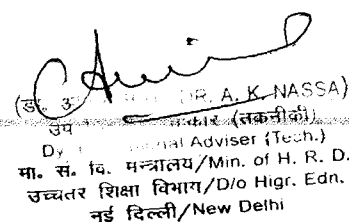 DR. A. K. NASSA)
(तकनीकी)
Adviser (Tech.)
मा. सं. वि. मन्त्रालय/Min. of H. R. D.
उच्चतर शिक्षा विभाग/D/o Higr. Edn.
नई दिल्ली/New Delhi